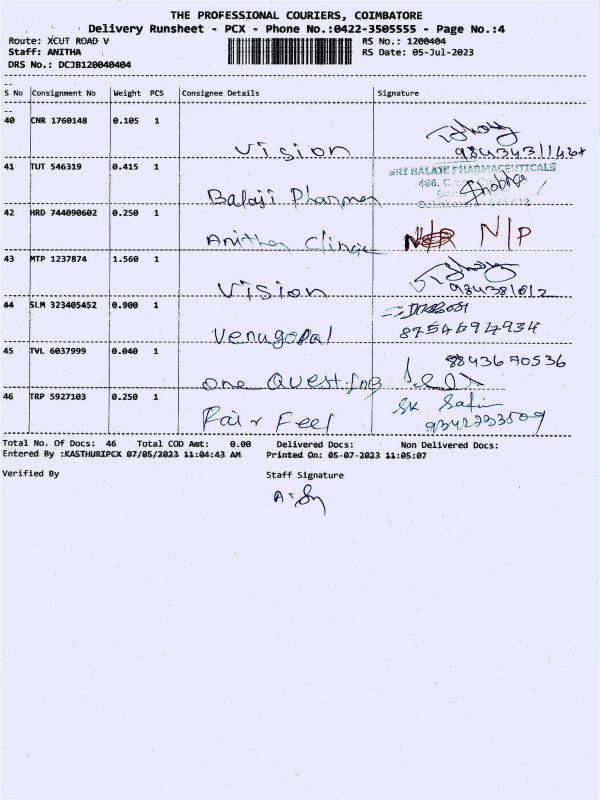 THE PROFESSIONAL COURIERS, COIMBATORE
Delivery Runsheet - PCX - Phone No.:0422-3505555 - Page No.:4
Route: XCUT ROAD V RS No.: 1200404
Staff: ANITHA RS Date: 05-Jul-2023
DRS No.: DCJB120040404
S No Consignment No Weight PCS Consignee Details Signature
40 CNR 1760148 0.105 1
Vision
41 TUT 546319 0.415 1 SRI BALAJI PHARMACEUTICALS
Balaji Pharma
42 HRD 744090602 0.250 1
Anitha Clinic N/P
43 MTP 1237874 1.560 1
Vision
44 SLM 323405452 0.900 1
Venugopal 8754694934
45 TVL 6037999 0.040 1 8843670536
one Quest
46 TRP 5927103 0.250 1 SK Safi
Fair Feel
Total No. Of Docs: 46 Total COD Amt: 0.00 Delivered Docs: Non Delivered Docs:
Entered By :KASTHURIPCX 07/05/2023 11:04:43 AM Printed On: 05-07-2023 11:05:07
Verified By Staff Signature